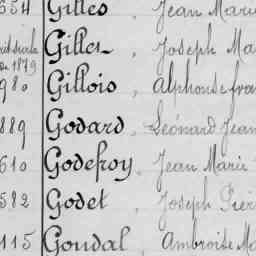 654 Gilles, Jean Marie
Gilles, Joseph Ma
de 1879
980 Gillois, Alphonse fran
889 Godard, Léonard Jean
610 Godefroy, Jean Marie
582 Godet, Joseph Pier
115 Goudal, Ambroise Ma